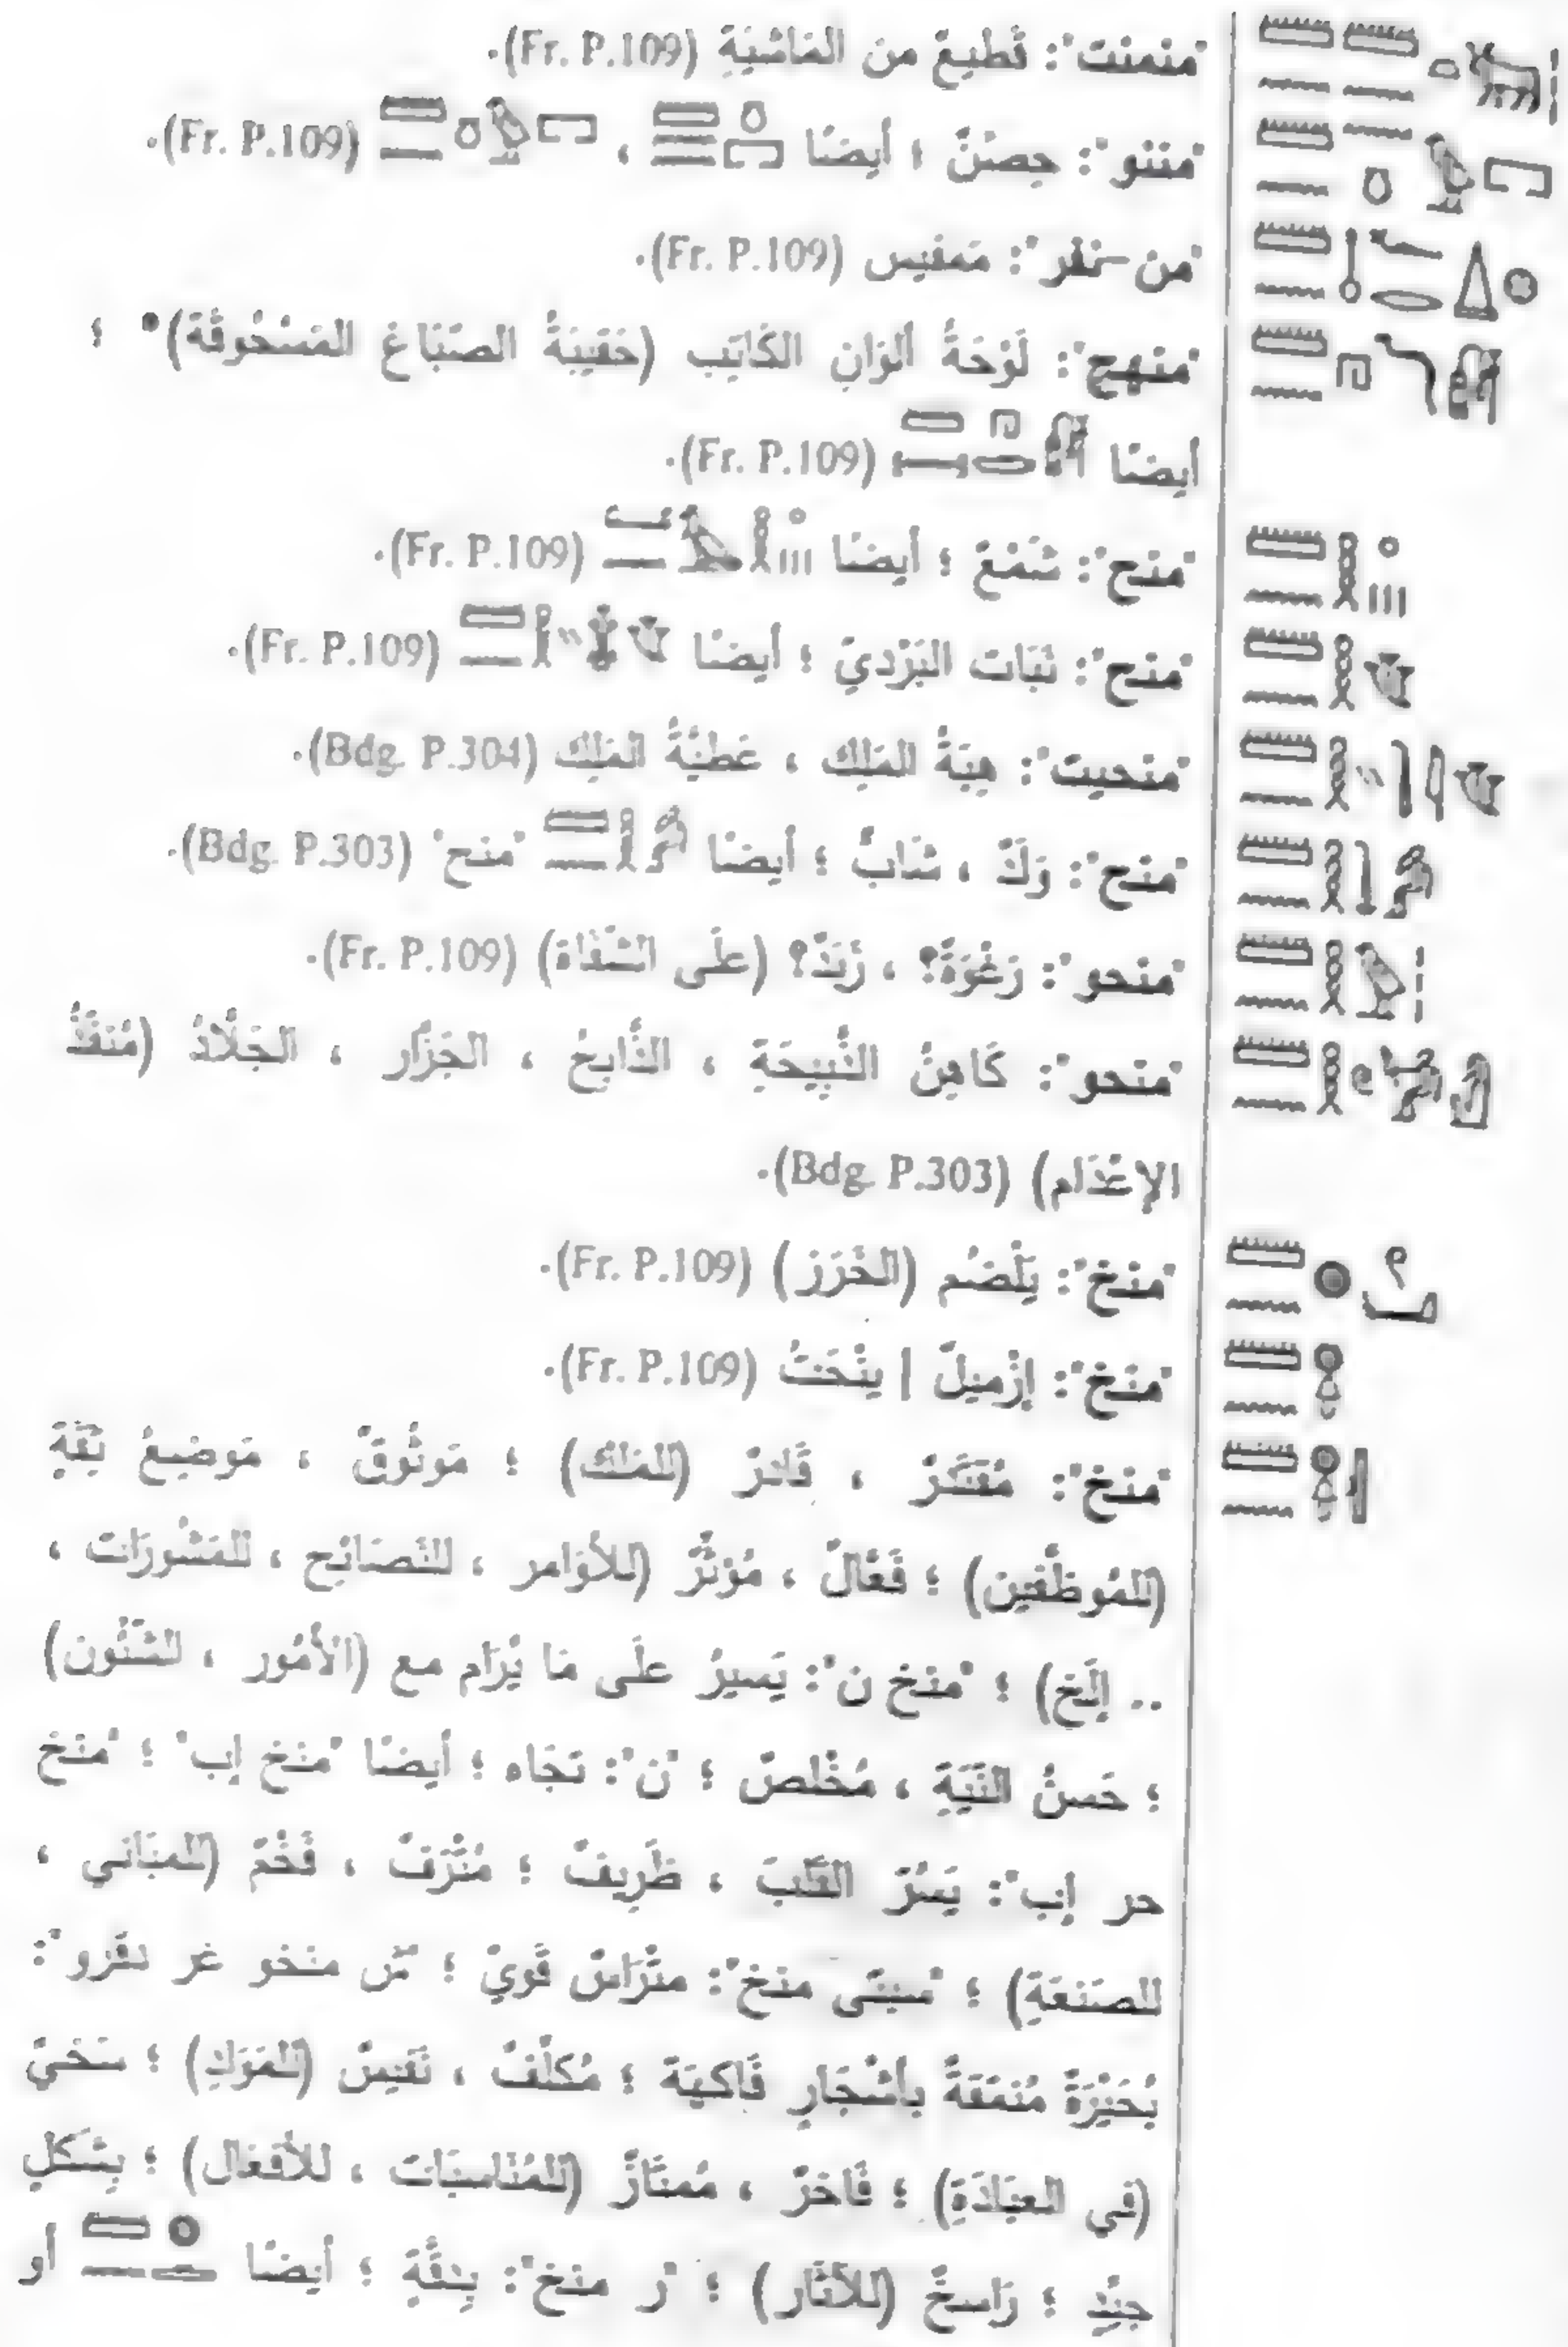 "منمنت": قَطيعٌ من المَاشيَةِ (Fr. P.109).
"مننو": حِصنٌ ؛ أيضًا ، (Fr. P.109).
"من-نفر": مَمفيس (Fr. P.109).
"منهج": لَوْحَةُ ألوَانِ الكَاتِب (حَقيبَةُ الصَبَاغ المَسْحُوقَة)* ؛
أيضًا (Fr. P.109).
"منح": شَمْعٌ ؛ أيضًا (Fr. P.109).
"منح": نَبَات البَرْديّ ؛ أيضًا (Fr. P.109).
"منحيت": هِبَةُ المَلِك ، عَطيَّةُ المَلِك (Bdg. P.304).
"منح": وَلَدٌ ، شَابٌّ ؛ أيضًا "منح" (Bdg. P.303).
"منحو": رَغْوَةٌ؟ ، زَبَدٌ؟ (علَى الشَّفَاة) (Fr. P.109).
"منحو": كَاهِنُ الذَّبيحَةِ ، الذَّابِحُ ، الجَزَّار ، الجَلَّادُ (مُنَفِّذُ
الإعْدَام) (Bdg. P.303).
"منخ": يَلْضُم (الخَرَز) (Fr. P.109).
"منخ": إزْميلٌ | يَنْحَتُ (Fr. P.109).
"منخ": مُقتَدرٌ ، قَادرٌ (للمَلك) ؛ مَوثُوقٌ ، مَوضِعُ ثِقَةٍ
(للمُوظَّفين) ؛ فَعَّالٌ ، مُؤثِّرٌ (للأوَامر ، للنَّصَائِح ، للمَشُورَات ،
.. إلَخ) ؛ "منخ ن": يَسيرُ علَى مَا يُرَام مع (الأُمُور ، للشُّئُون)
؛ حَسنُ النِّيَةِ ، مُخْلصٌ ؛ "ن": تجَاه ؛ أيضًا "منخ إب" ؛ "منخ
حر إب": يَسُرّ القَلبَ ، ظَرِيفٌ ؛ مُتْرَفٌ ، فَخْمٌ (للمبَاني ،
للصَنعَةِ) ؛ منخ": متْرَاسٌ قَويّ ؛ منخو غر نفرو":
بُحَيْرَةٌ مُنَمَّقَةٌ بأشْجَارٍ فَاكهَة ؛ مُكلّفٌ ، نَفيسٌ ؛ سَخيّ
(في العبَادَةِ) ؛ فَاخرٌ ، مُمتَازٌ (للمُنَاسبَات ، للأفعَال) ؛ بِشَكلٍ
جيِّدٍ ؛ رَاسخٌ (للآثَار) ؛ "ر منخ": بِثقَّةٍ ؛ أيضًا أو